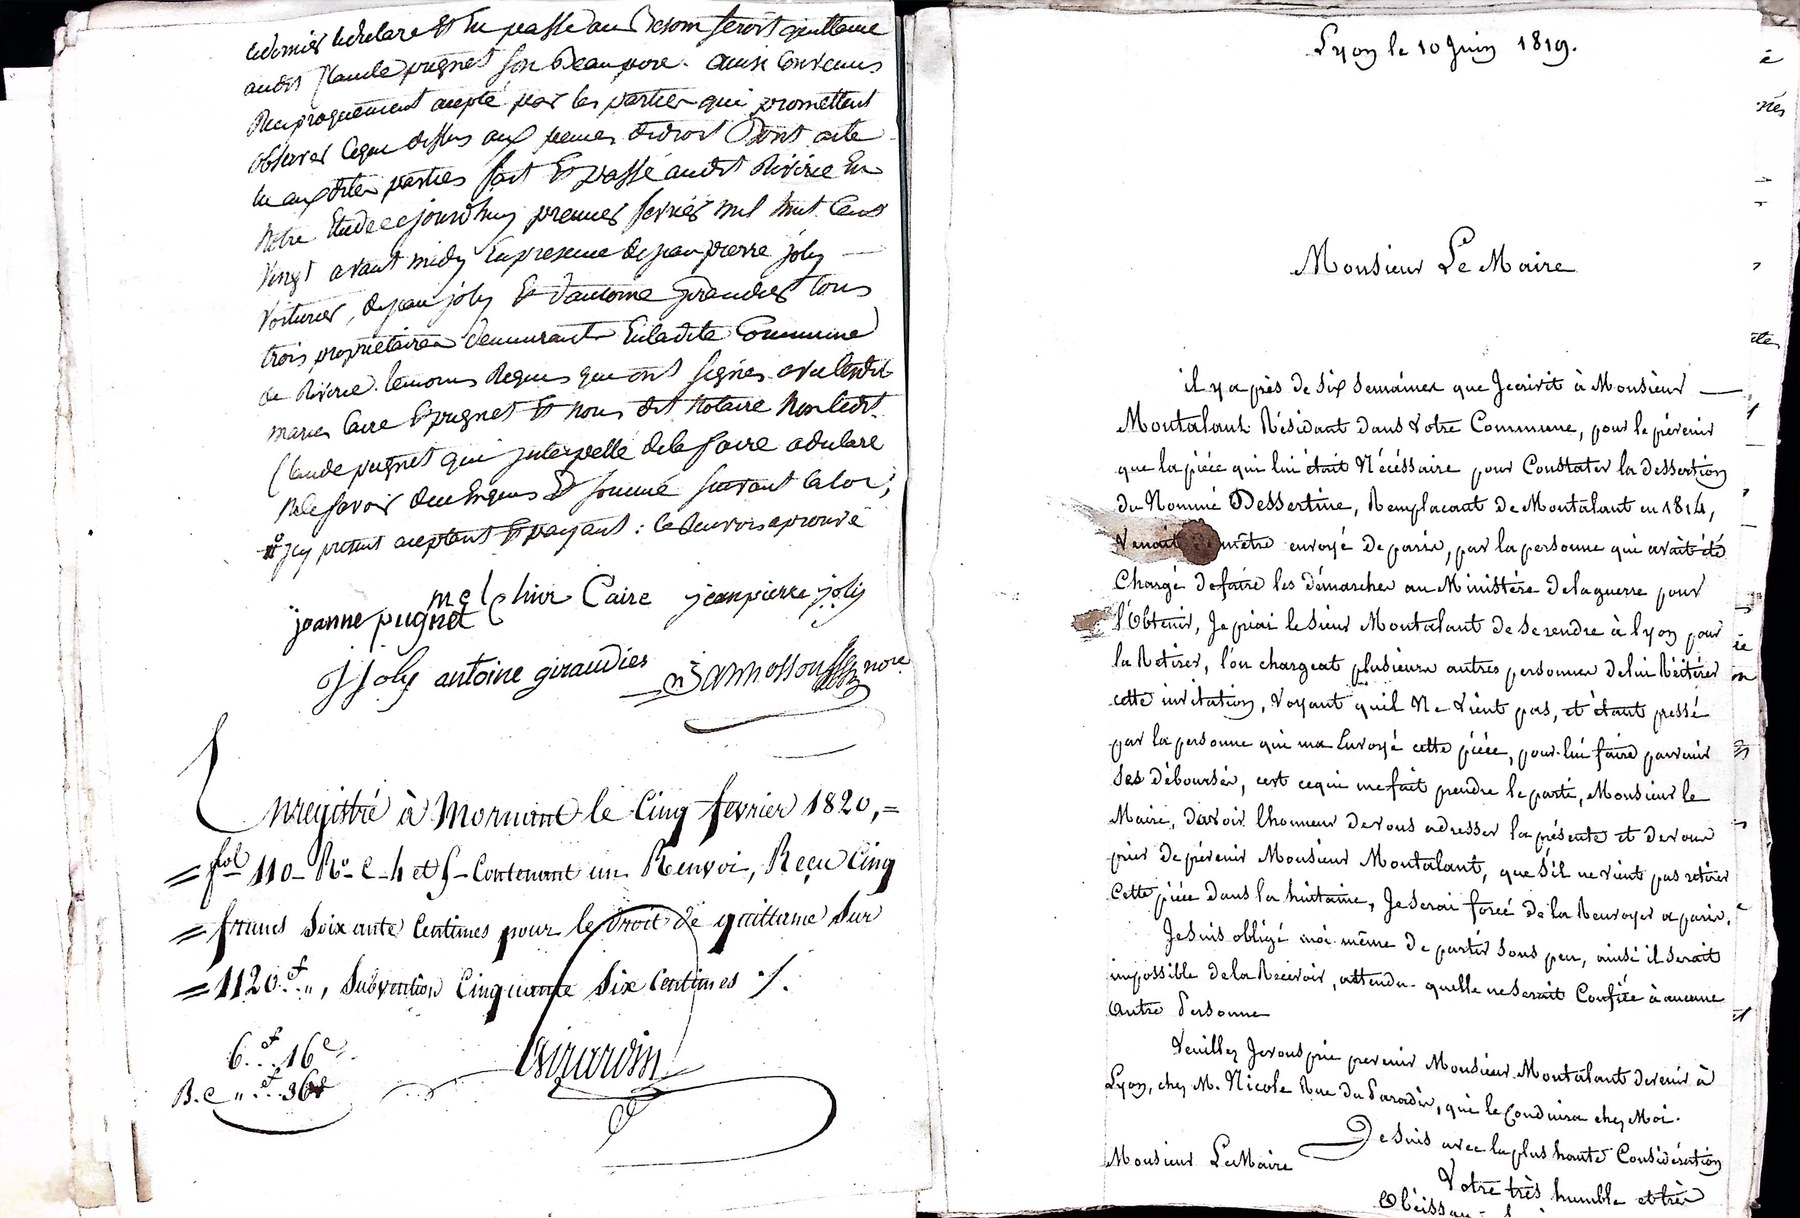 ce dernier le declare et en passe au besoin seroit quittance
audit Claude pugnet son Beaupere. ainsi Convenus
Reciproquement acepté par les parties qui promettent
observer Ceque dessus aux peines dedroit Dont acte
lu auxdites parties fait Et passé audit Riverie En
Notre Etude cejourdhuy premier fevrier mil huit Cent
Vingt avant midy En presence de jean pierre joly
Voiturier, de jean joly Et d'antoine giraudier tous
trois proprietaires demeurants Enladite Commune
de Riverie temoins Requis qui ont signés avec ledit
maries Caire Et pugnet Et nous dit Notaire Non ledit
Claude pugnet qui interpellé dele faire a declaré
Nele savoir de ce Enquis Et sommé suivant la loi,
icy present aceptant Et payant : le Renvois aprouvé
melchior Caire jeanpierre joly
jeanne pugnet
J Joly antoine giraudier nore
Enregistré à Mornant le Cinq fevrier 1820,=
= fol 110 Ro C. h et S - Contenant un Renvoi, Reçu Cinq
= francs Soixante Centimes pour le droit de quittance Sur
= 1120 f. „, Subvention Cinquante Six Centimes ./.
6.f 16c
B. c „.f 56
Girardin
Lyon le 10 Juin 1819.
Monsieur Le Maire
il y a près de six semaines que Jecrivit à Monsieur
Montalant Résidant dans votre Commune, pour le prévenir
que la pièce qui lui était Nécéssaire pour Constater la dessertion
du Nommé Dessertine, Remplacant de Montalant en 1814,
Venait de mêtre envoyé de paris, par la personne qui avait été
Chargé defaire les démarches au Ministére delaguerre pour
l'Obtenir, Je priai le Sieur Montalant de se rendre à lyon pour
la Retirer, l'on chargeat plusieurs autres personnes delui Réitérer
cette invitation, Voyant qu'il Ne vient pas, et étant pressé
par la personne qui ma Envoyé cette pièce, pour lui faire parvenir
Ses déboursés, cest cequi me fait prendre le parti, Monsieur le
Maire, d'avoir lhonneur devous adresser la présente et devous
prier de prévenir Monsieur Montalant, que S'il ne vient pas retirer
Cette pièce dans la huitaine, Je serai forcé de la Renvoyer a paris.
Je suis obligé moi même de partir sous peu, ainsi il serait
impossible de la Recevoir, attendu quelle ne serait Confiée à aucune
autre Personne
Veuillez Jevous prie prevenir Monsieur Montalant devenir à
Lyon, chez M. Nicole Rue du Paradis, qui le Conduira chez Moi.
Je Suis avec la plus haute Considération
Monsieur Le Maire
Votre très humble et très
Obéissan